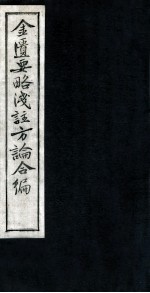 金匱要略淺註方論合編